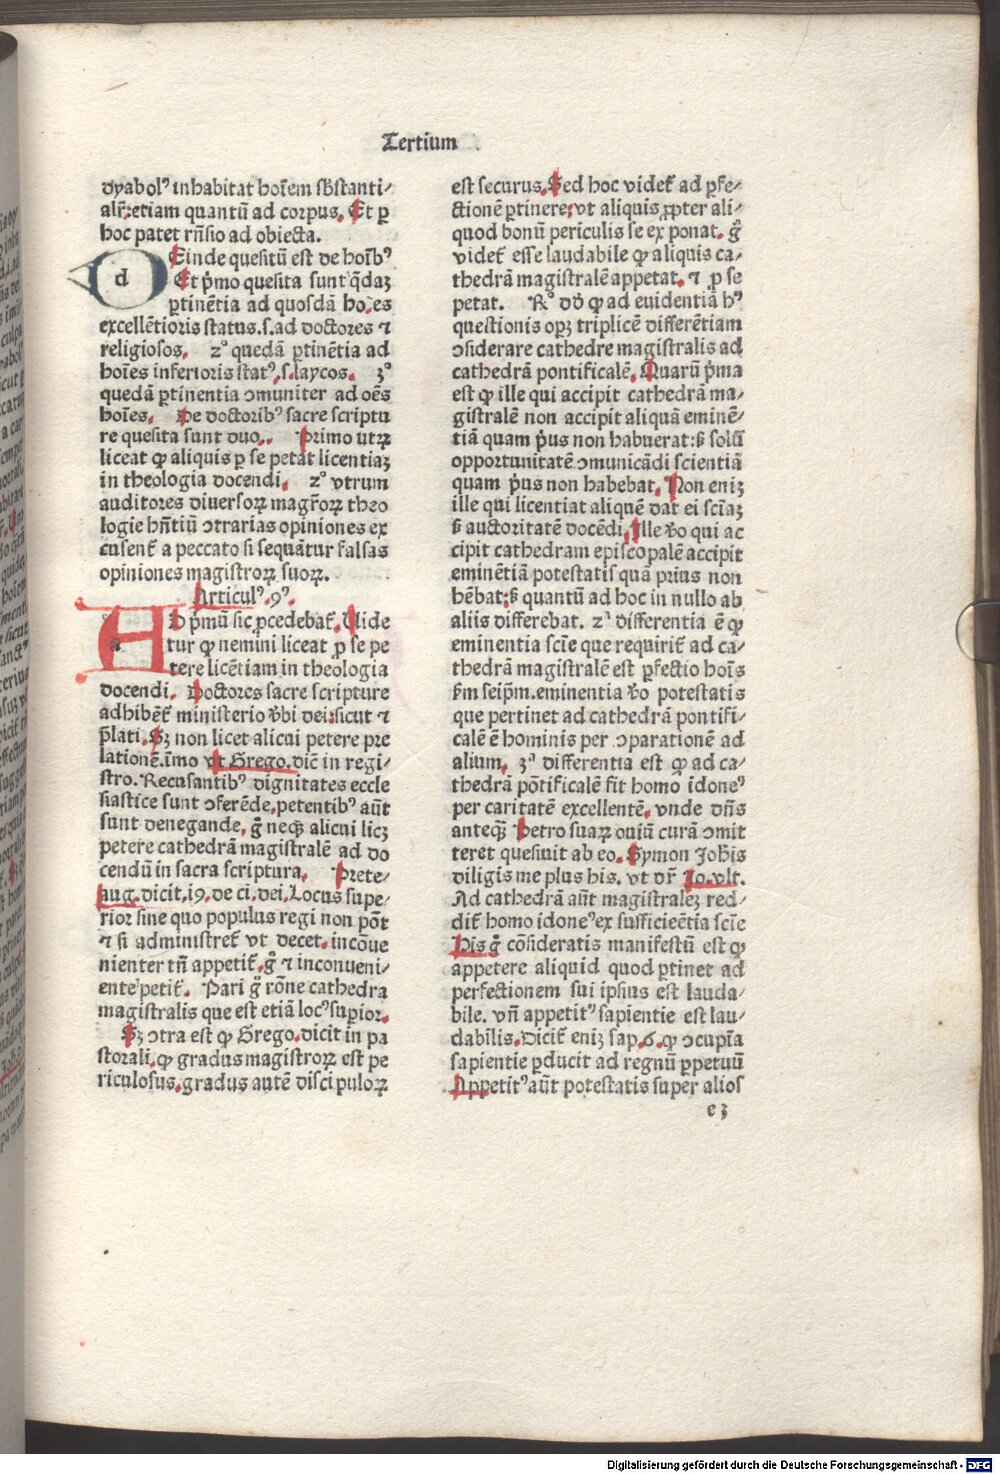 Tertium
dyabolꝰ inhabitat hoīem sb̄stanti⸗
alr̄: etiam quantū ad corpus. Et ꝑ
hoc patet rn̄sio ad obiecta.
dEinde quesitū est de hoīb⁹
Et pͥmo quesita sunt q̄daꝫ
ꝑtinētia ad quosdā hoīes
excellētioris status. s. ad doctores ⁊
religiosos. 2° quedā ꝑtinētia ad
hoīes inferioris statꝰ. s. laycos. 3°
quedā ꝑtinentia ꝯmuniter ad oēs
hoīes. De doctoribꝰ sacre scriptu
re quesita sunt duo. Primo utrꝝ
liceat ꝙ aliquis ꝑ se petat licentiaꝫ
in theologia docendi. 2° vtrum
auditores diuersoꝝ magr̄oꝝ theo
logie hn̄tiū ꝯtrarias opiniones ex
cusent̄ a peccato si sequātur falsas
opiniones magistroꝝ suoꝝ.
Articulꝰ .9ꝰ.
aD pͥmū sic ꝓcedebat̄. Uide
tur ꝙ nemini liceat ꝓ se pe
tere licētiam in theologia
docendi. Doctores sacre scripture
adhibēt̄ ministerio v̄bi dei: sicut ⁊
p̄lati. Sꝫ non licet alicui petere pre
lationē. īmo vt Grego. dic̄ in regi⸗
stro. Recusantibꝰ dignitates eccle
siastice sunt ꝯferēde, petentibꝰ aūt
sunt denegande. g̊ neqꝫ alicui licꝫ
petere cathedrā magistralē ad do
cendū in sacra scriptura. Prete⸗
aug. dicit. 19. de ci. dei. Locus supe⸗
rior sine quo populus regi non pōt
⁊ si administret̄ vt decet. incōue
nienter tn̄ appetit̄. g̊ ⁊ inconueni⸗
ente petit̄. Pari g̊ rōne cathedra
magistralis que est etiā locꝰ suꝑior.
Sꝫ ꝯtra est ꝙ Grego. dicit in pa
storali. ꝙ gradus magistroꝝ est pe
riculosus. gradus autē discipuloꝝ
est securus. Sed hoc videt̄ ad ꝑfe⸗
ctionē ꝑtinere: vt aliquis ꝓpter ali⸗
quod bonū periculis se exponat. g̊
videt̄ esse laudabile ꝙ aliquis ca⸗
thedrā magistralē appetat. ⁊ ꝓ se
petat. R° dō ꝙ ad euidentiā hꝰ
questionis opꝫ triplicē differētiam
ꝯsiderare cathedre magistralis ad
cathedrā pontificalē. Quarū pͥma
est ꝙ ille qui accipit cathedrā ma⸗
gistralē non accipit aliquā eminē⸗
tiā quam pͥus non habuerat: ß solū
opportunitatē ꝯmunicādi scientiā
quam pͥus non habebat. Non eniꝫ
ille qui licentiat aliquē dat ei sciaꝫ
ß auctoritatē docēdi. Ille v̊o qui ac
cipit cathedram episcopalē accipit
eminētiā potestatis quā prius non
hēbat: ß quantū ad hoc in nullo ab
aliis differebat. 2ᵃ differentia ē ꝙ
eminentia scīe que requirit̄ ad ca⸗
thedrā magistralē est ꝑfectio hoīs
ẞm seip̄m. eminentia v̊o potestatis
que pertinet ad cathedrā pontifi⸗
calē ē hominis per ꝯparationē ad
alium. 3ᵃ differentia est ꝙ ad ca⸗
thedrā pōtificalē fit homo idoneꝰ
per caritatē excellentē. vnde dn̄s
anteqꝫ Petro suaꝝ ouiū curā ꝯmit
teret quesiuit ab eo. Symon Joh̄is
diligis me plus his. vt dr̄ Jo. vlt.
Ad cathedrā aūt magistraleꝫ red⸗
dit̄ homo idoneꝰ ex sufficieētia scīe
His g̊ cōsideratis manifestū est ꝙ
appetere aliquid quod ꝑtinet ad
perfectionem sui ipsius est lauda⸗
bile. vn̄ appetitꝰ sapientie est lau⸗
dabilis. Dicit̄ eniꝫ sap. 6. ꝙ ꝯcupīa
sapientie ꝑducit ad regnū ꝑpetuū
Appetitꝰ aūt potestatis super alios
e3
Digitalisierung gefördert durch die Deutsche Forschungsgemeinschaft - DFG